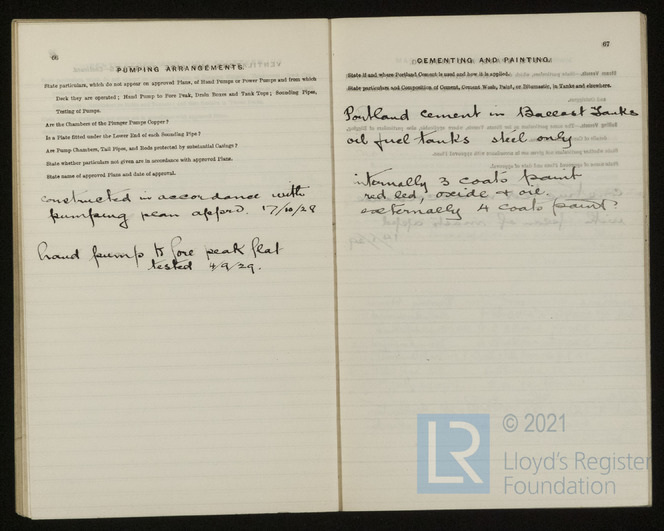 66
PUMPING ARRANGEMENTS.
State particulars, which do not appear on approved Plans, of Hand Pumps or Power Pumps and from which
Deck they are operated; Hand Pump to Fore Peak, Drain Boxes and Tank Tops; Sounding Pipes,
Testing of Pumps.
Are the Chambers of the Plunger Pumps Copper?
Is a Plate fitted under the Lower End of each Sounding Pipe?
Are Pump Chambers, Tail Pipes, and Rods protected by substantial Casings?
State whether particulars not given are in accordance with approved Plans.
State name of approved Plans and date of approval.
constructed in accordance with
pumping plan approd. 17/10/28
hand pump to fore peak flat
tested 4/9/29.
67
CEMENTING AND PAINTING.
State if and where Portland Cement is used and how it is applied.
State particulars and Composition of Cement, Cement Wash, Paint, or Bitumastic, in Tanks and elsewhere.
Portland cement in Ballast Tanks
oil fuel tanks steel only
internally 3 coats paint
red led, oxide & oil.
externally 4 coats paint
LR
© 2021
Lloyd's Register
Foundation